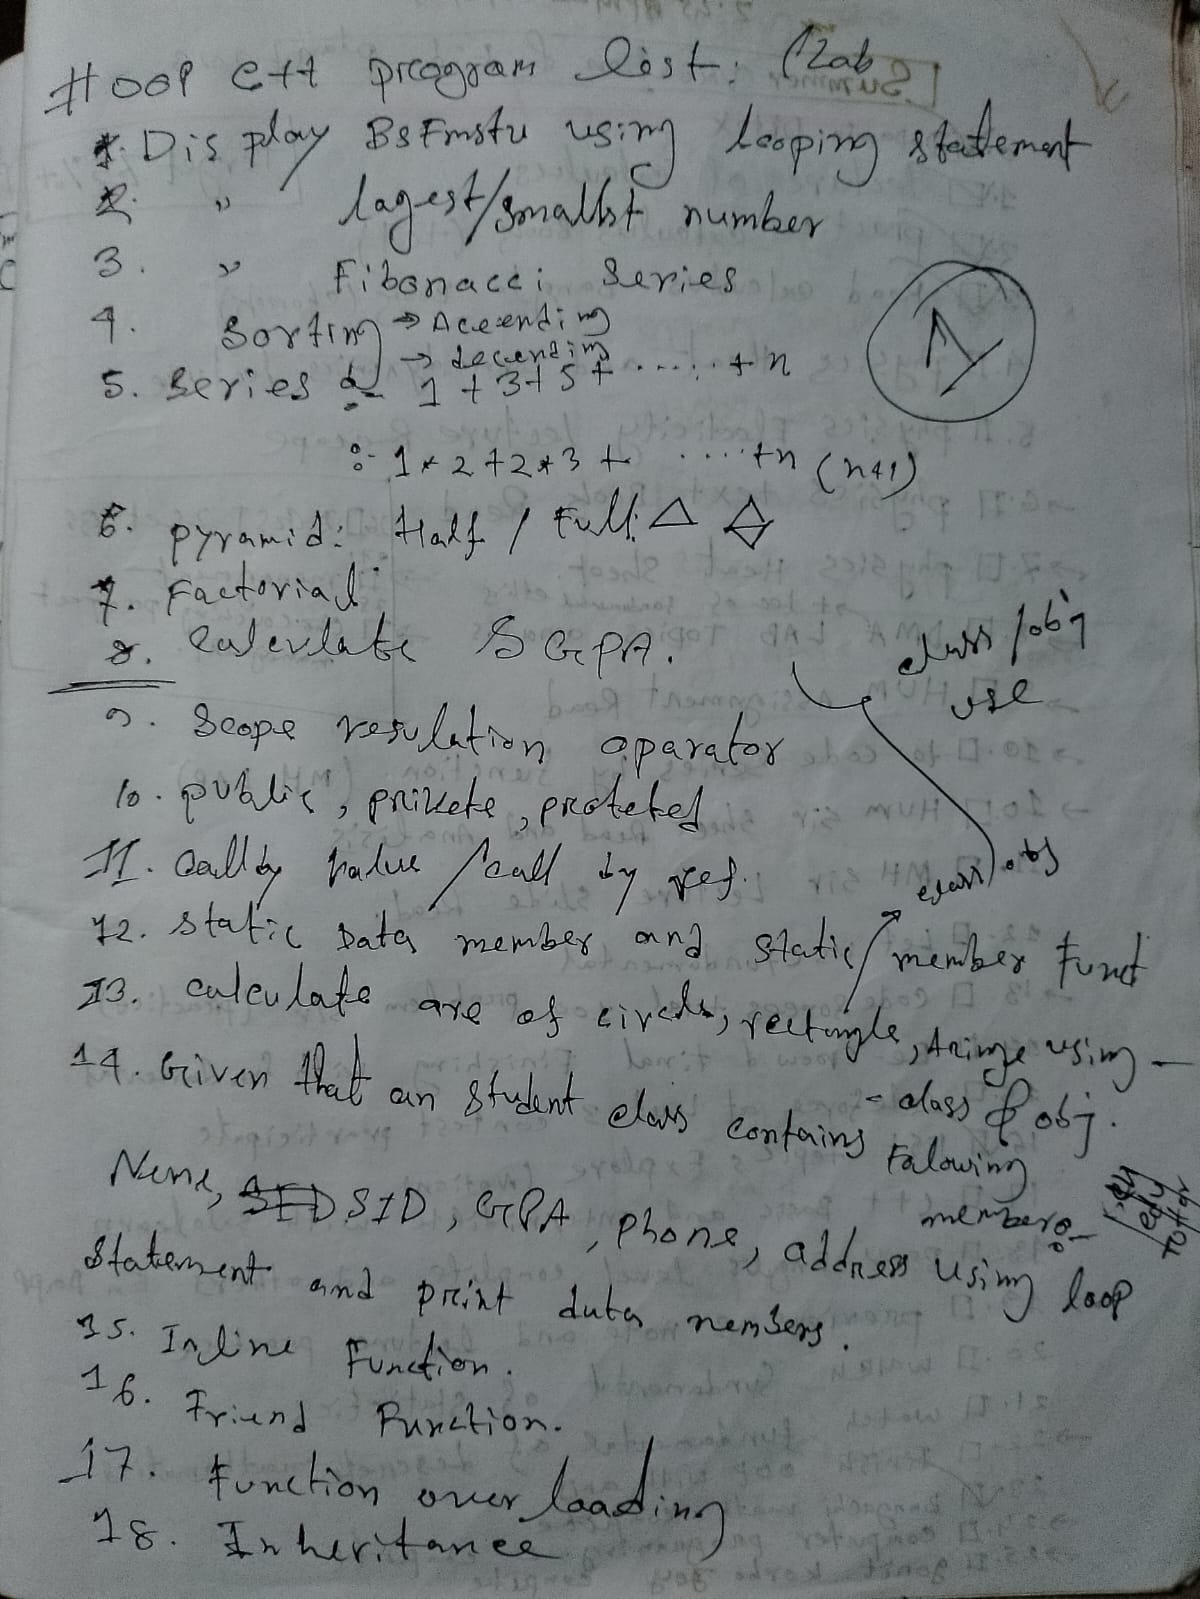 # OOP C++ program list: Lab
1. Display BsFmstu using looping statement
2. " lagest/smallst number
3. " Fibonacci Series
4. Sorting → Accending
→ decending
5. Series :- 1 + 3 + 5 + ...... + n
:- 1*2+2*3+ .....+n (n+1)
6. pyramid: Half / Full:
7. Factorial
8. Calculate SGPA.
class/obj
use
9. Scope resulation oparator
10. public, privete, proteted
11. call by value / call by ref.
class/obj
12. static Data member and static member Funct
13. calculate are of circle, rectangle, using
- class & obj.
14. Given that an student class contains Falowing
members:-
Neme, SID, GPA, phone, address using loop
statement and print data members.
15. Inline Function.
16. Friend Function.
17. Function over loading
18. Inheritance